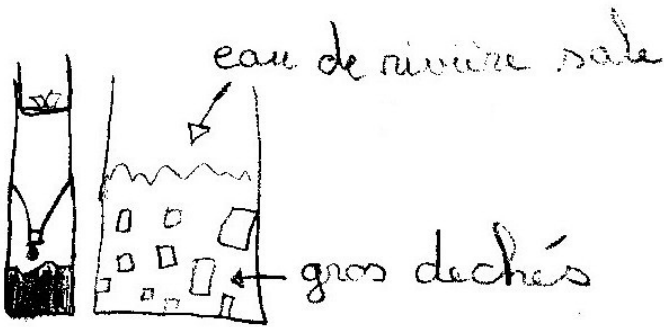 eau de rivière sale
gros dechés